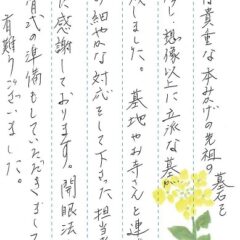 は貴重な本みかげの先祖の墓石を
想像以上に立派な墓が
致しました。墓地やお寺さんと連
め細やかな対応をして下さった担当者
に感謝しております。開眼法
式の準備もしていただきまして
有難うございました。